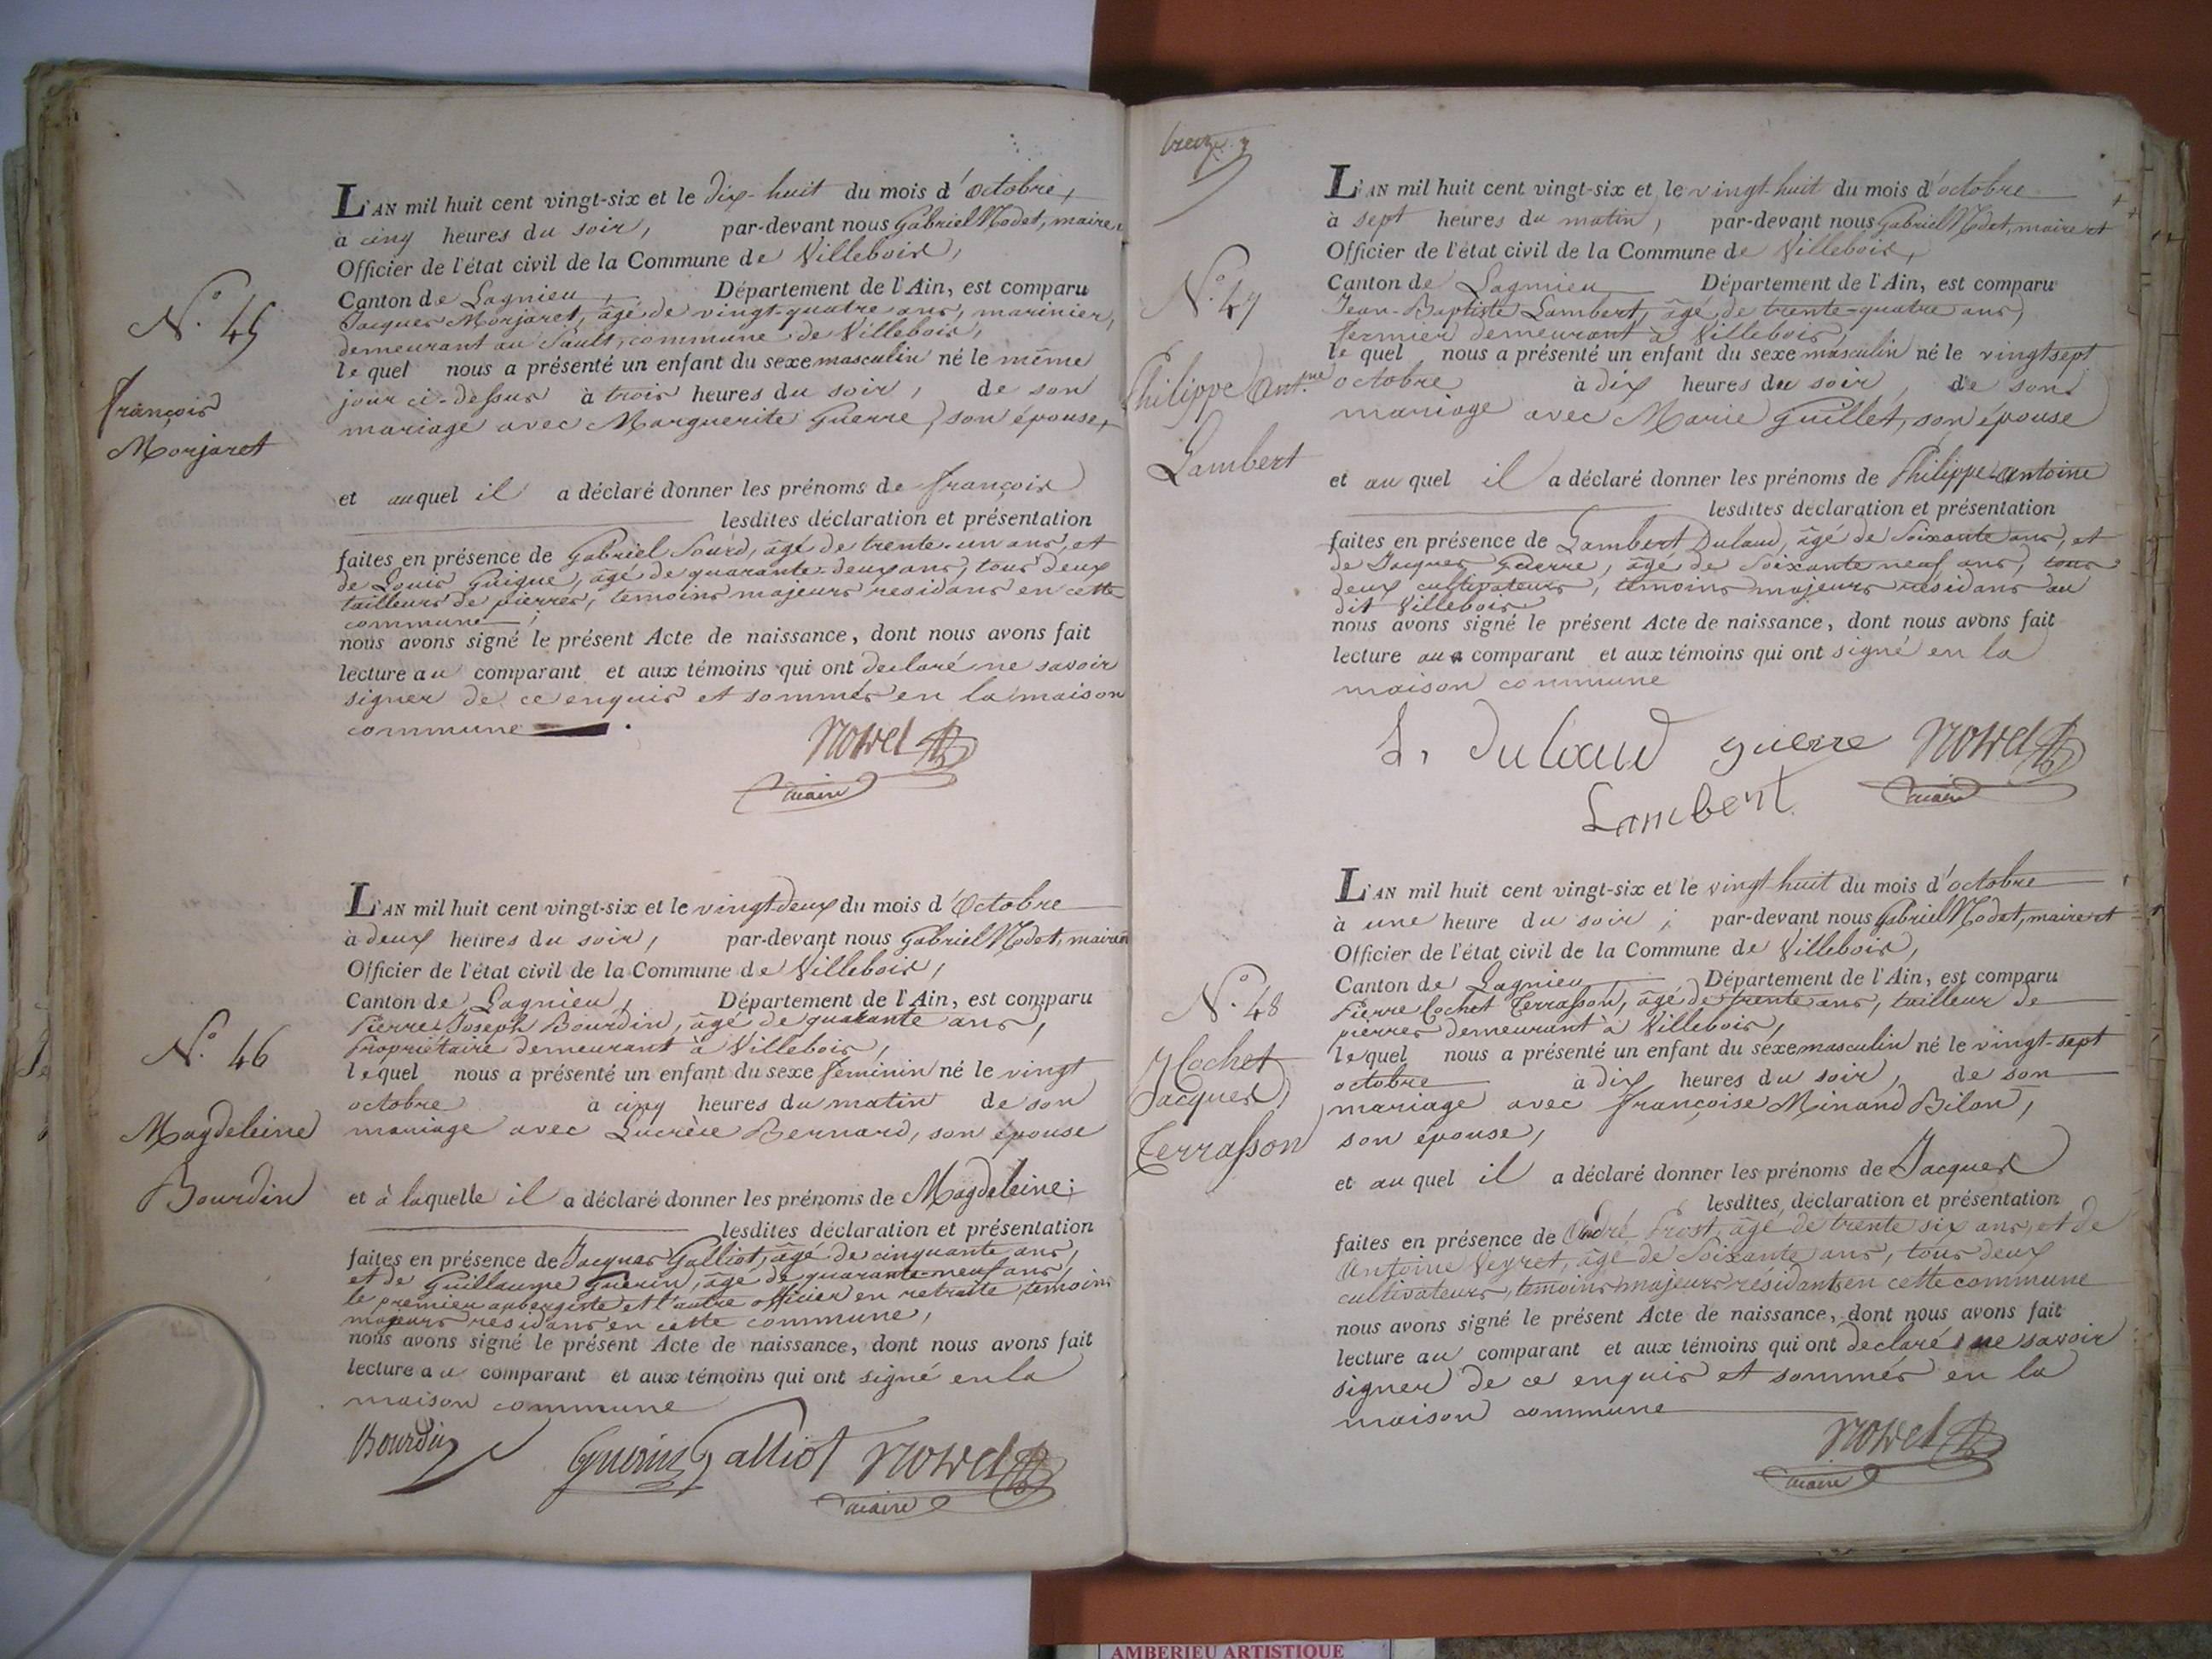 L'AN mil huit cent vingt-six et le dix-huit du mois d'octobre,
à cinq heures du soir, par-devant nous Gabriel Modet, maire
Officier de l'état civil de la Commune de Villebois,
Canton de Lagnieu, Département de l'Ain, est comparu
Jacques Morjaret, âgé de vingt-quatre ans, marinier,
demeurant au Sault, commune de Villebois,
lequel nous a présenté un enfant du sexe masculin né le même
jour ci-dessus à trois heures du soir, de son
mariage avec Marguerite Guerre, son épouse,
et auquel il a déclaré donner les prénoms de François
lesdites déclaration et présentation
faites en présence de Gabriel Sourd, âgé de trente-un ans, et
de Louis Guigue, âgé de quarante-deux ans, tous deux
tailleurs de pierres, temoins majeurs residans en cette
commune;
nous avons signé le présent Acte de naissance, dont nous avons fait
lecture au comparant et aux témoins qui ont declaré ne savoir
signer de ce enquis et sommés en la maison
commune
maire
N.° 45
François
Morjaret
L'AN mil huit cent vingt-six et le vingt-deux du mois d'Octobre
à deux heures du soir, par-devant nous Gabriel Modet, maire et
Officier de l'état civil de la Commune de Villebois,
Canton de Lagnieu, Département de l'Ain, est comparu
Pierre Joseph Bourdin, âgé de quarante ans,
Propriétaire demeurant à Villebois,
lequel nous a présenté un enfant du sexe féminin né le vingt
octobre à cinq heures du matin de son
mariage avec Lucrèce Bernard, son épouse
et à laquelle il a déclaré donner les prénoms de Magdeleine;
lesdites déclaration et présentation
faites en présence de Jacques Galliot, âgé de cinquante ans,
et de Guillaume Guérin, âgé de quarante-neuf ans,
le premier aubergiste et l'autre officier en retraite, temoins
majeurs residans en cette commune,
nous avons signé le présent Acte de naissance, dont nous avons fait
lecture au comparant et aux témoins qui ont signé en la
maison commune
Bourdin Guérin Galliot
maire
N.° 46
Magdeleine
Bourdin
L'AN mil huit cent vingt-six et le vingt-huit du mois d'octobre
à sept heures du matin, par-devant nous Gabriel Modet, maire et
Officier de l'état civil de la Commune de Villebois,
Canton de Lagnieu Département de l'Ain, est comparu
Jean-Baptiste Lambert, âgé de trente-quatre ans,
fermier demeurant à Villebois,
lequel nous a présenté un enfant du sexe masculin né le vingt sept
octobre à dix heures du soir, de son
mariage avec Marie Guillet, son épouse
et au quel il a déclaré donner les prénoms de Philippe-Antoine
lesdites déclaration et présentation
faites en présence de Lambert Dulaud, âgé de Soixante ans, et
de Jacques Guerre, âgé de Soixante neuf ans, tous
deux cultivateurs, témoins majeurs résidans au
dit Villebois
nous avons signé le présent Acte de naissance, dont nous avons fait
lecture au comparant et aux témoins qui ont signé en la
maison commune
L. Dulaud guerre
Lambert
maire
N.° 47
Philippe Ant.ne
Lambert
L'AN mil huit cent vingt-six et le vingt-huit du mois d'octobre
à une heure du soir, par-devant nous Gabriel Modet, maire et
Officier de l'état civil de la Commune de Villebois,
Canton de Lagnieu Département de l'Ain, est comparu
Pierre Cochet Terrasson, âgé de trente ans, tailleur de
pierres demeurant à Villebois,
lequel nous a présenté un enfant du sexe masculin né le vingt-sept
octobre à dix heures du soir, de son
mariage avec Françoise Minand Bilon,
son épouse,
et au quel il a déclaré donner les prénoms de Jacques
lesdites déclaration et présentation
faites en présence de André Prost, âgé de trente six ans, et de
Antoine Veyret, âgé de Soixante ans, tous deux
cultivateurs, temoins majeurs résidants en cette commune
nous avons signé le présent Acte de naissance, dont nous avons fait
lecture au comparant et aux témoins qui ont declaré ne savoir
signer de ce enquis et sommés en la
maison commune
maire
N.° 48
Cochet
Jacques
Terrasson
AMBERIEU ARTISTIQUE